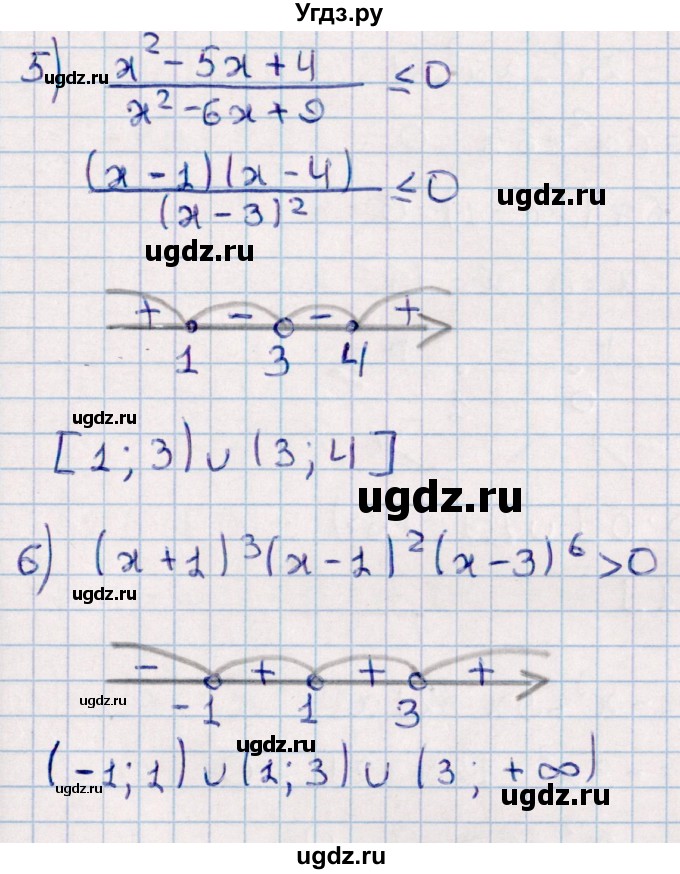 Угдз.ру
5) x² - 5x + 4 ≤ 0
ugdz.ru
x² - 6x + 9
(x - 1)(x - 4) ≤ 0
ugdz.ru
(x - 3)²
ugdz.ru
+ - - +
1 3 4
ugdz.ru
[1; 3) ∪ (3; 4]
ugdz.ru
6) (x + 1)³(x - 1)²(x - 3)⁶ > 0
ugdz.ru
- + + +
ugdz.ru
-1 1 3
ugdz.ru
(-1; 1) ∪ (1; 3) ∪ (3; +∞)
ugdz.ru
ugdz.ru
ugdz.ru